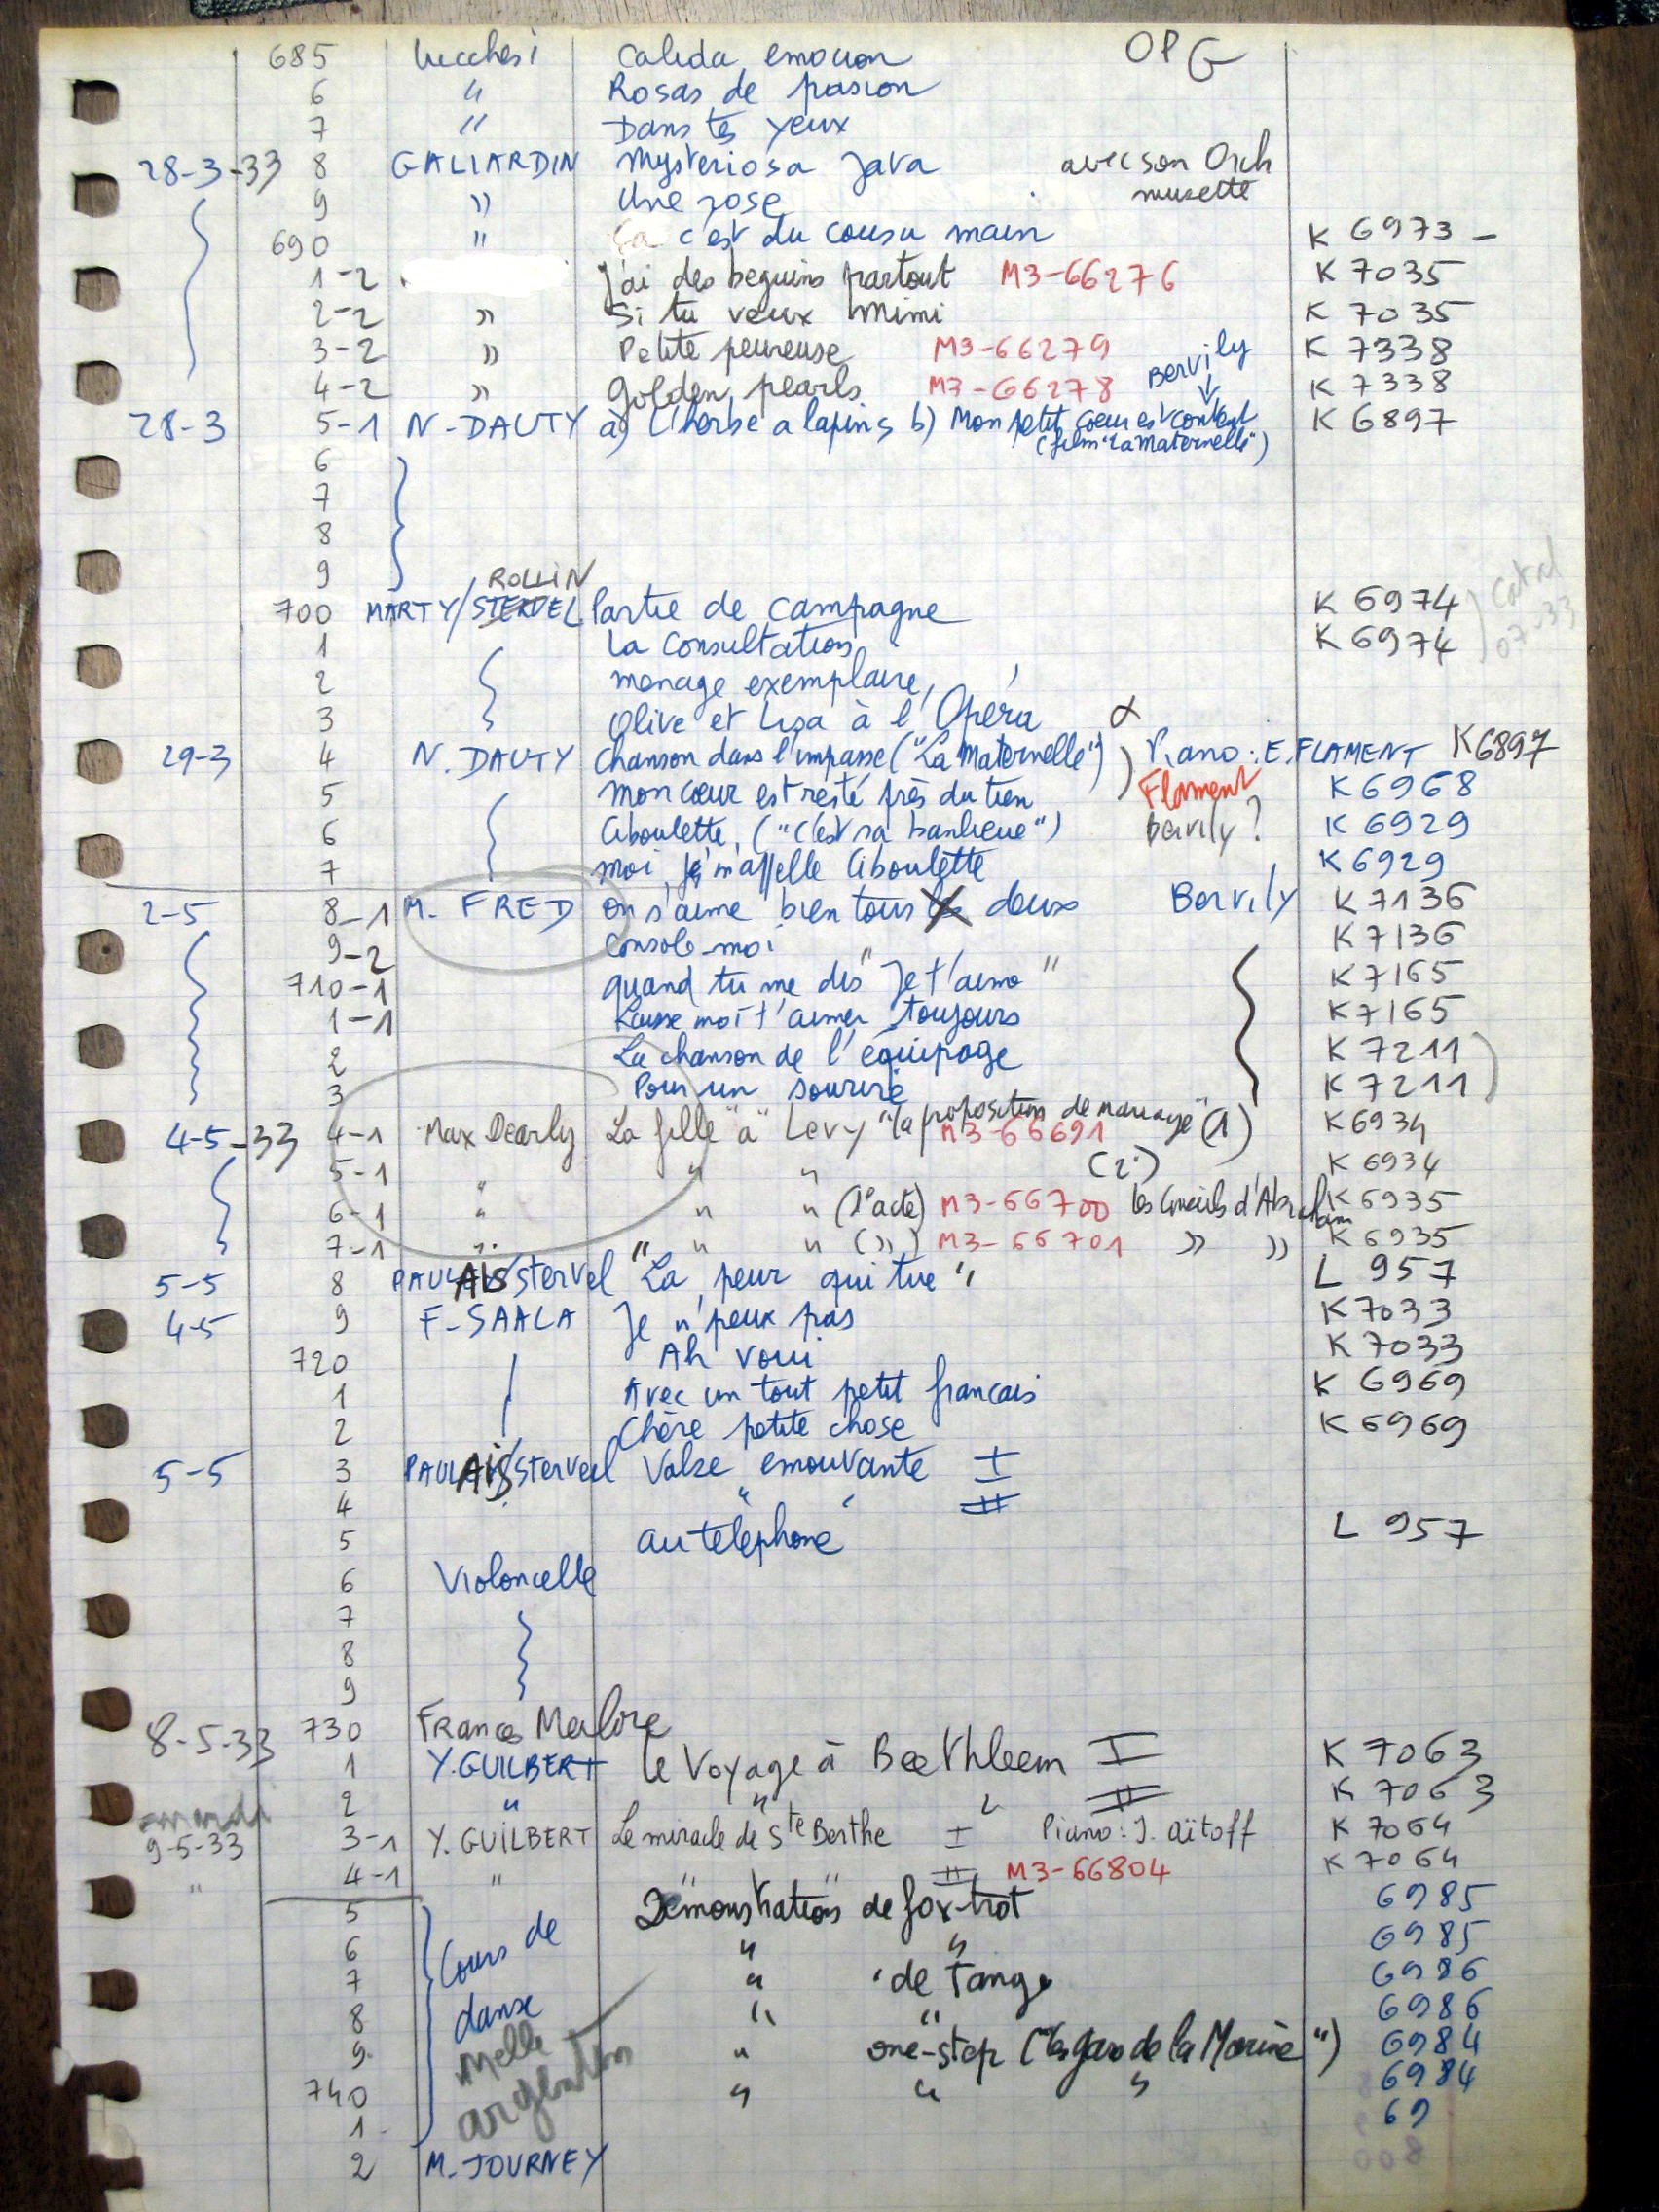 685 Lucchesi Calida emocion OPG
6 " Rosas de pasion
7 " Dans tes yeux
28-3-33 8 GALIARDIN Mysteriosa Java avec son Orch musette
9 " Une rose
690 " Ça c'est du cousu main K 6973 -
1-2 J'ai des beguins partout M3-66276 K 7035
2-2 " Si tu veux Mimi K 7035
3-2 " Petite peureuse M3-66279 K 7338
4-2 " Golden pearls M3-66278 Bervily K 7338
28-3 5-1 N-DAUTY a) L'herbe a lapins b) Mon petit coeur est content K 6897
(film "La Maternelle")
6
7
8
9
ROLLIN
700 MARTY/STERDEL Partie de campagne K 6974
1 La Consultation K 6974 07-33
2 menage exemplaire
3 Olive et Lisa à l'Opéra α
29-3 4 N. DAUTY Chanson dans l'impasse ("La Maternelle") Piano: E. FLAMENT K6897
5 Mon coeur est resté près du tien Flament K 6968
6 Ciboulette, ("c'est sa banlieue") bervily? K 6929
7 moi, je m'appelle Ciboulette K 6929
2-5 8-1 M. FRED on s'aime bien tous les deux Bervily K 7136
9-2 Console-moi K 7136
710-1 quand tu me dis "Je t'aime" K 7165
1-1 Laisse moi t'aimer toujours K 7165
2 La chanson de l'équipage K 7211
3 Pour un sourire K 7211
4-5-33 4-1 Max Dearly La fille "à" Levy "la proposition de mariage" (1) M3-66691 K 6934
5-1 " " " (2) K 6934
6-1 " " " (1er acte) M3-66700 Les Conseils d'Abraham K 6935
7-1 " " " (") M3-66701 " " K 6935
5-5 8 PAULAIS/Stervel "La peur qui tue" L 957
4-5 9 F-SAALA Je n'peux pas K 7033
720 Ah voui K 7033
1 Avec un tout petit francais K 6969
2 Chère petite chose K 6969
5-5 3 PAULAIS/Stervel Valse emouvante I
4 " " II
5 au téléphone L 957
6 Violoncelle
7
8
9
8-5-33 730 Frances
1 Y. GUILBERT Le Voyage à Beethleem I K 7063
2 " " " II K 7063
9-5-33 3-1 Y. GUILBERT Le miracle de Ste Berthe I Piano: I. Aïtoff K 7064
" 4-1 " " " II M3-66804 K 7064
5 Démonstration de fox-trot 6985
6 Cours de " " 6985
7 " de Tango 6986
8 danse " " 6986
9 Melle " one-step ("les gars de la Marine") 6984
740 " " " 6984
1 69
2 M. JOURNEY